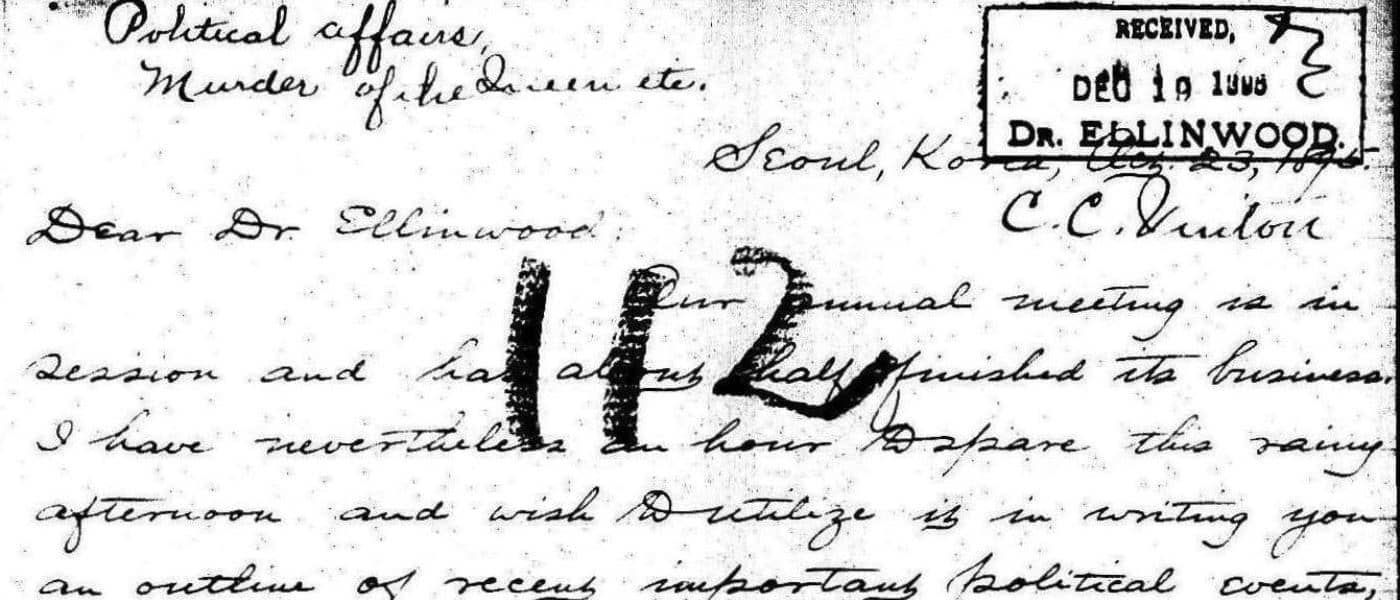 Political affairs,
Murder of the Queen etc.
RECEIVED,
DEC 19 1895
DR. ELLINWOOD.
Seoul, Korea, Oct. 23, 1895.
C. C. Vinton
Dear Dr. Ellinwood:
112
Our annual meeting is in
session and has about half finished its business.
I have nevertheless an hour to spare this rainy
afternoon and wish to utilize it in writing you
an outline of recent important political events,